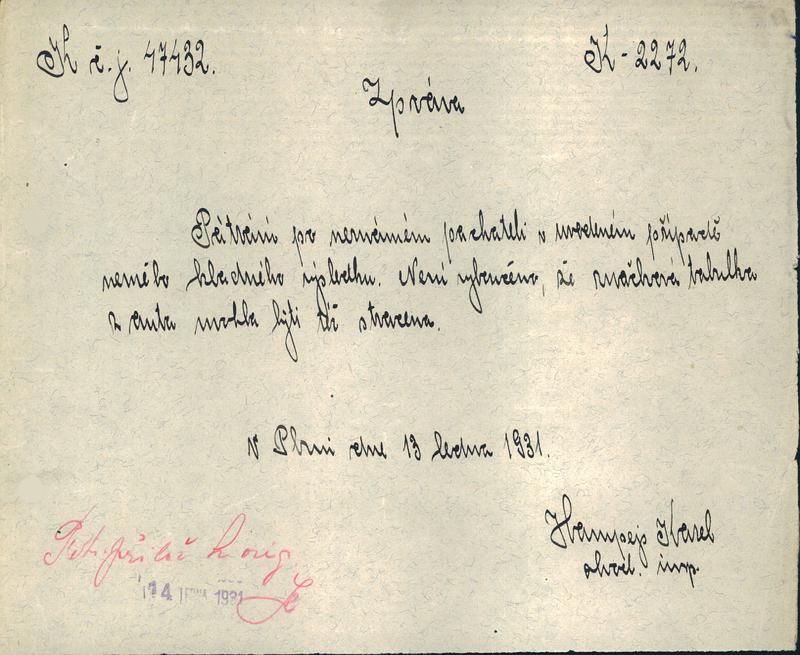 K č. j. 47432. K - 2272.
Zpráva
Pátrání po neznámém pachateli v uvedeném případě
nemělo kladného výsledku. Není vyloučeno, že značková tabulka
z auta mohla býti též ztracena.
V Plzni dne 13 ledna 1931.
Hampejs Karel
obvod. insp.
přilož k orig.
14 LEDNA 1931